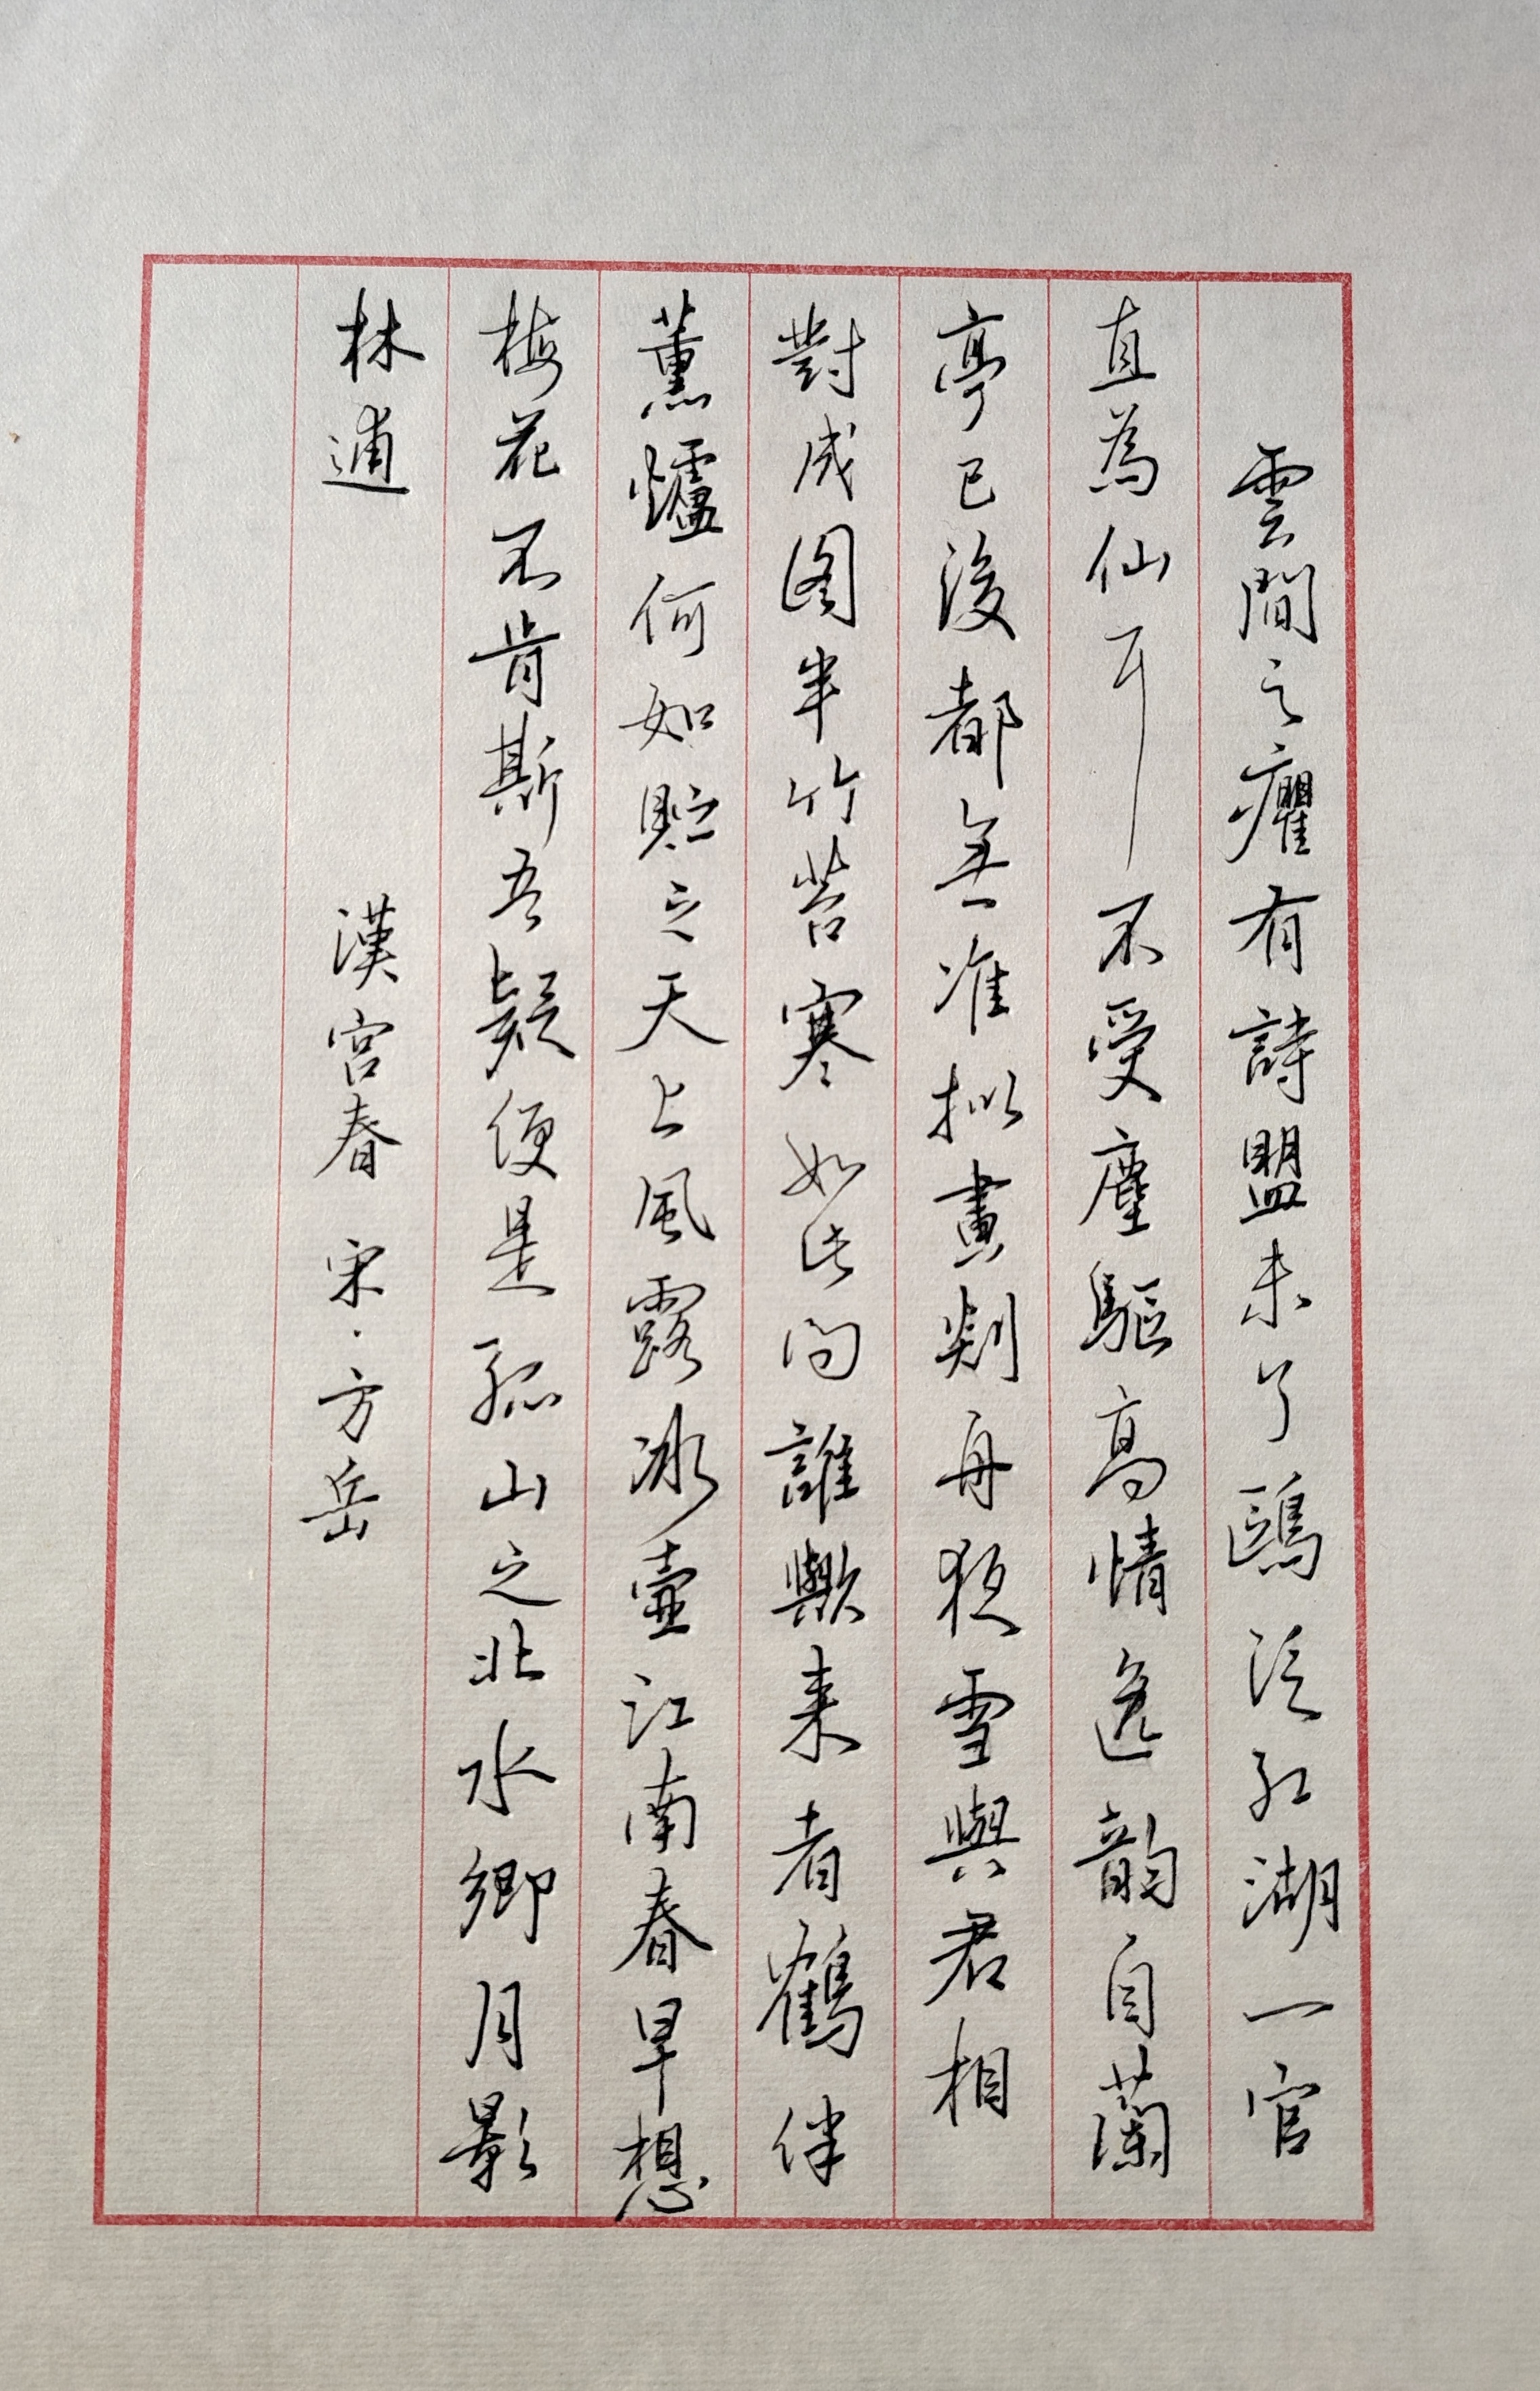 雲間之癯有詩盟未了鷗汎江湖一官
直爲仙耳不受塵驅高情逸韻自蘭
亭已後都無准拟畫剡舟夜雪與君相
對成图半竹苔寒如此问誰歟来者鶴伴
薰爐何如貯之天上風露冰壷江南春早想
梅花不肯斯吾疑便是孤山之北水鄉月影
林逋
漢宮春 宋·方岳